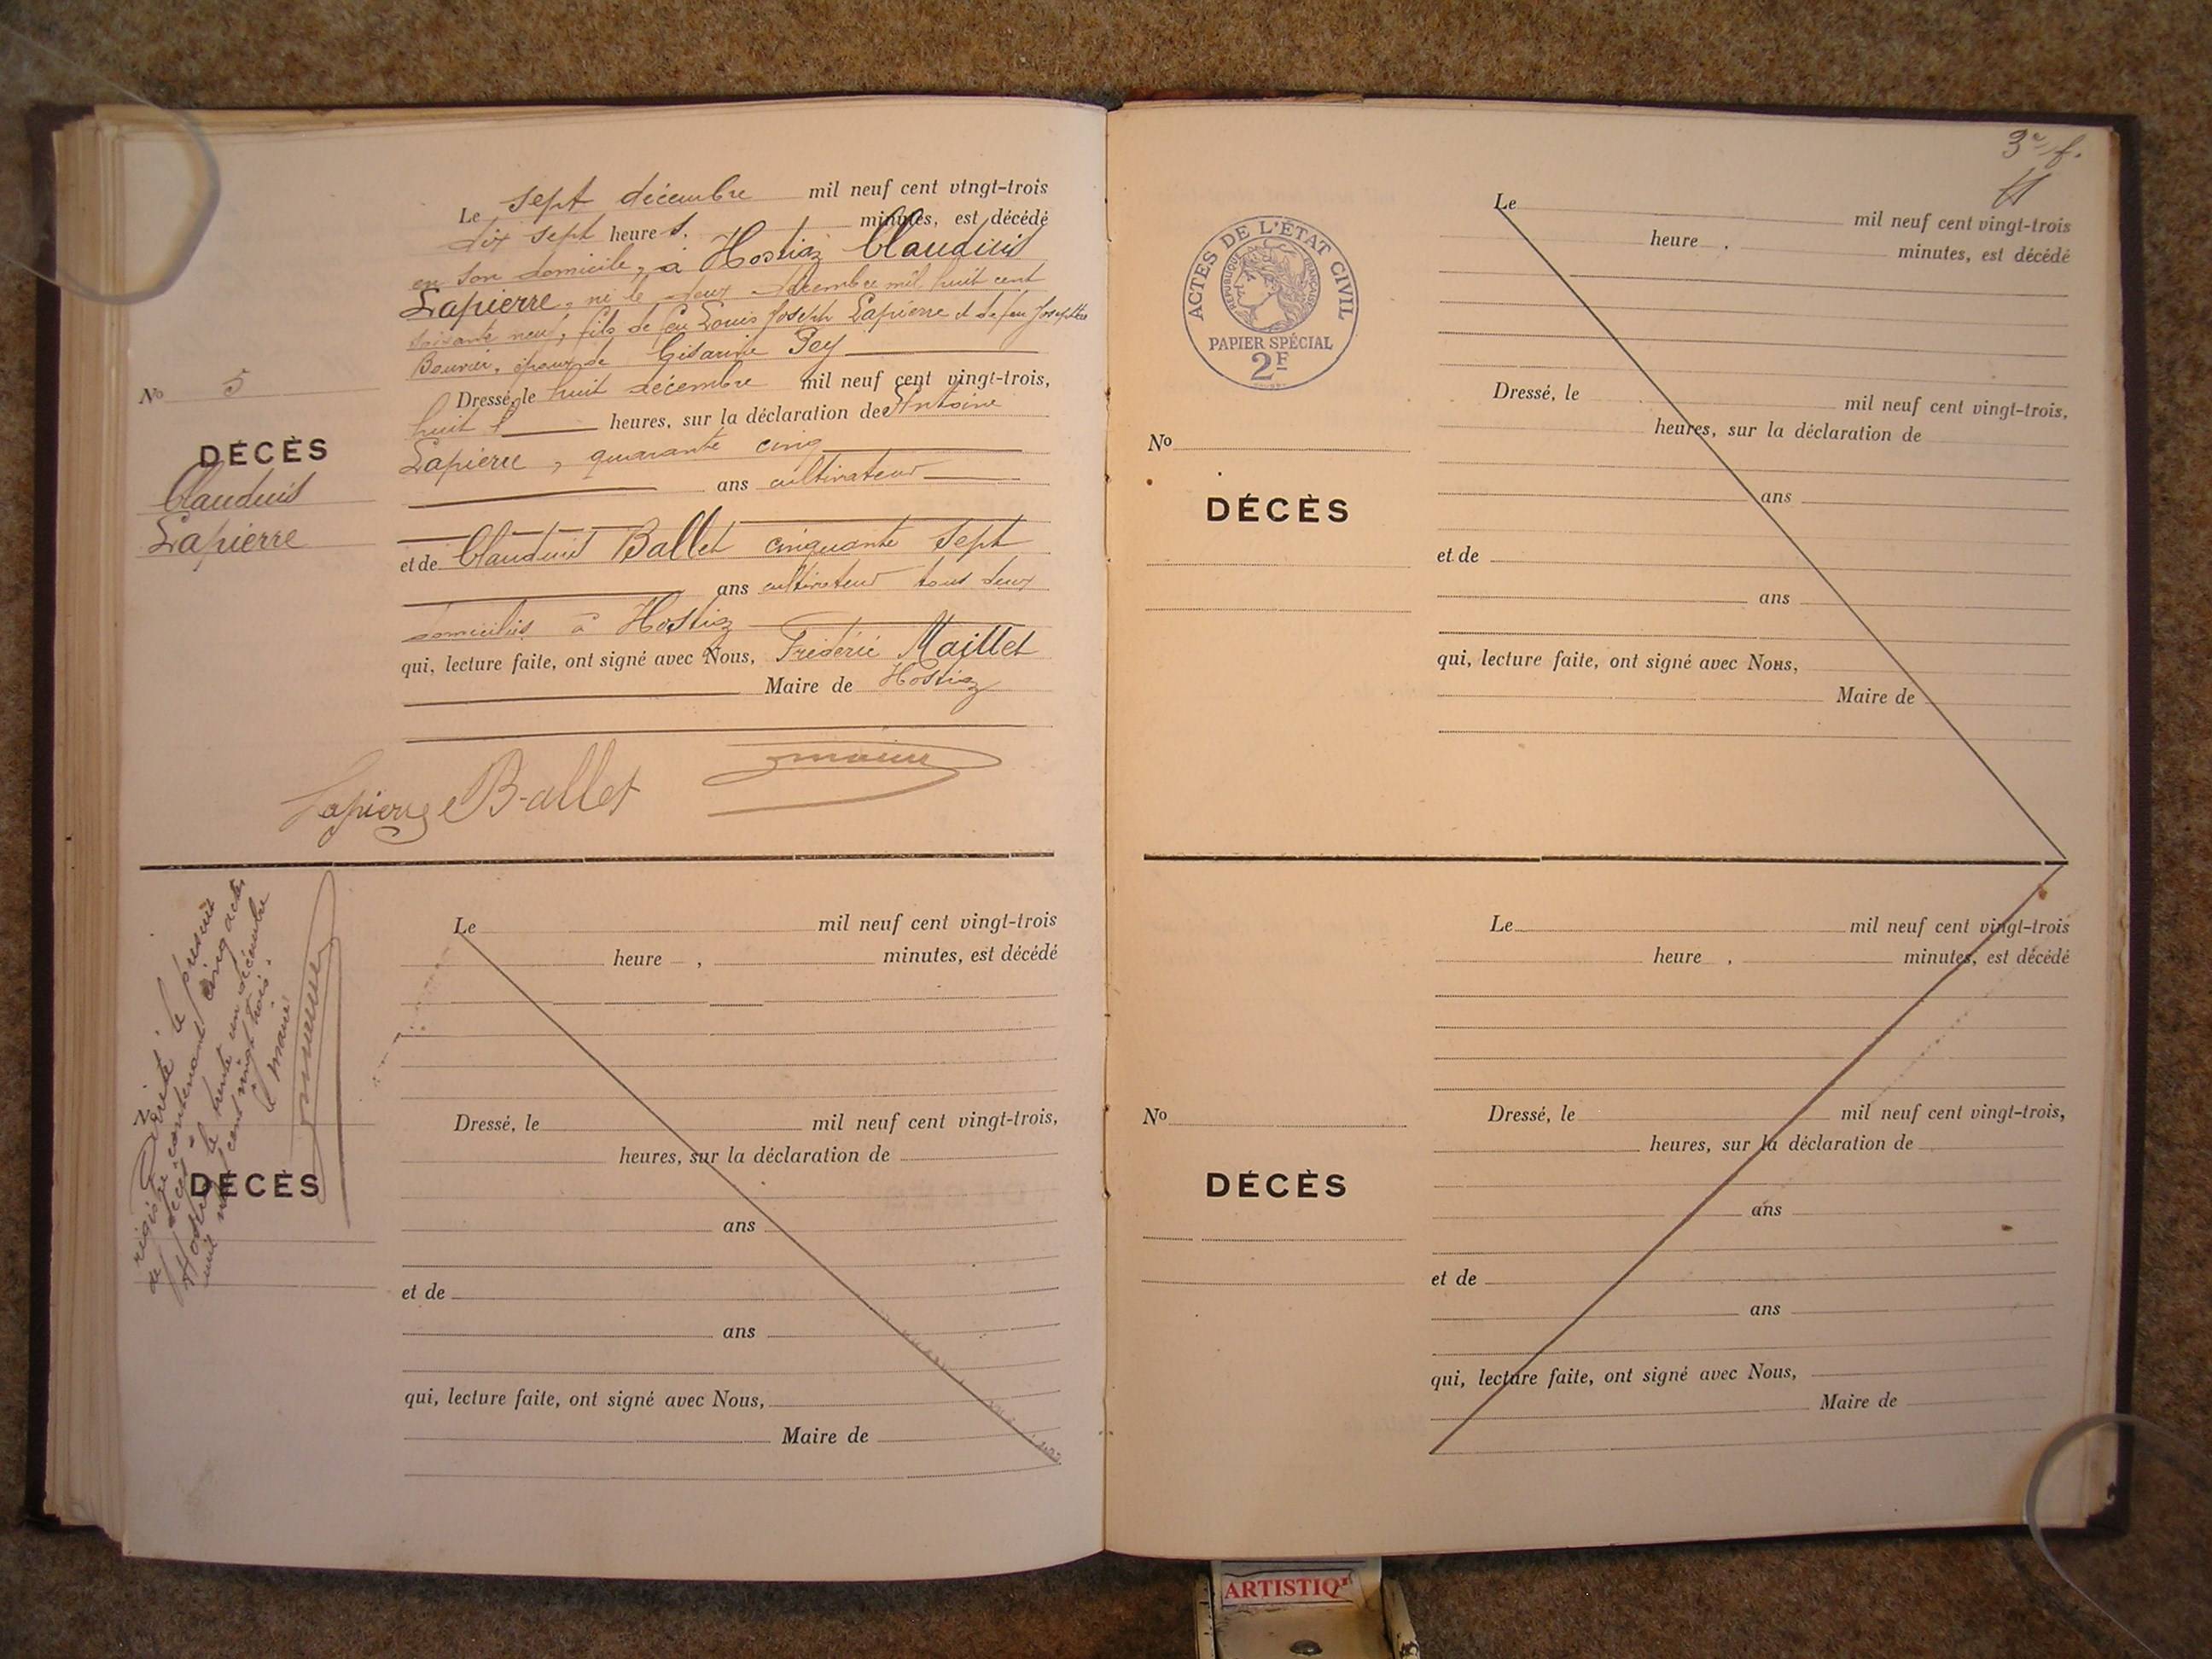 Le sept décembre mil neuf cent vingt-trois
dix sept heures. minutes, est décédé
en son domicile, à Hostiaz Claudius
Lapierre, né le deux décembre mil huit cent
soixante neuf, fils de feu Louis Joseph Lapierre et de feu Josephte
Bouvier, époux de Césarine Pey
Dressé, le huit décembre mil neuf cent vingt-trois,
huit heures, sur la déclaration de Antoine
Lapierre, quarante cinq
ans cultivateur
et de Claudius Ballet cinquante sept
ans cultivateur tous deux
domiciliés à Hostiaz
qui, lecture faite, ont signé avec Nous, Frédéric Maillet
Maire de Hostiaz
No 5
DÉCÈS
Claudius
Lapierre
Lapierre Ballet
Arrêté le présent
registre contenant cinq actes
de décès
Hostiaz le trente un décembre
mil neuf cent vingt trois.
le maire
DÉCÈS
Le mil neuf cent vingt-trois
heure , minutes, est décédé
Dressé, le mil neuf cent vingt-trois,
heures, sur la déclaration de
ans
et de
ans
qui, lecture faite, ont signé avec Nous,
Maire de
3e f.
ACTES DE L'ÉTAT CIVIL
RÉPUBLIQUE FRANÇAISE
PAPIER SPÉCIAL
2F
Le mil neuf cent vingt-trois
heure , minutes, est décédé
Dressé, le mil neuf cent vingt-trois,
heures, sur la déclaration de
No
DÉCÈS
ans
et de
ans
qui, lecture faite, ont signé avec Nous,
Maire de
Le mil neuf cent vingt-trois
heure , minutes, est décédé
Dressé, le mil neuf cent vingt-trois,
No
heures, sur la déclaration de
DÉCÈS
ans
et de
ans
qui, lecture faite, ont signé avec Nous,
Maire de
ARTISTIQ